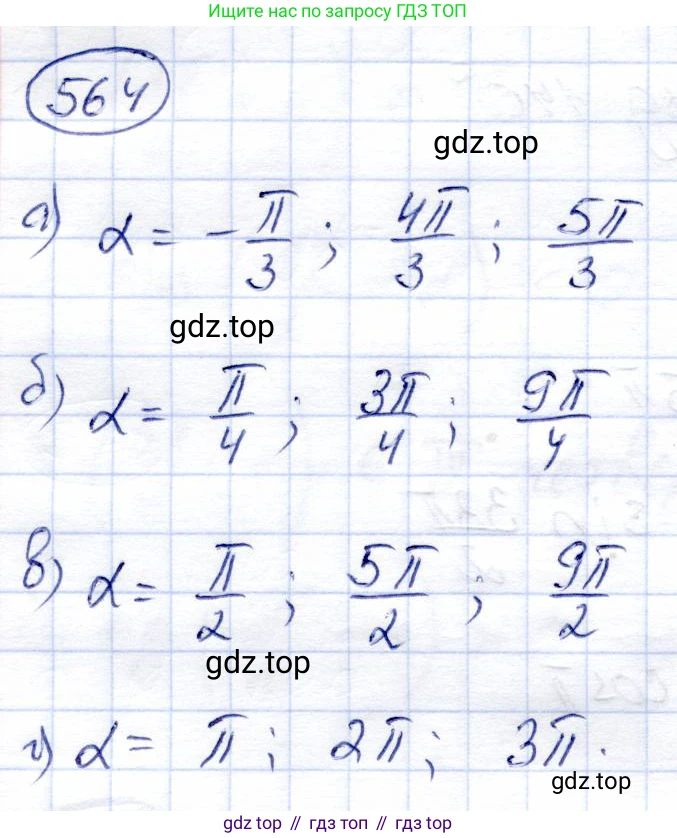 Ищите нас по запросу ГДЗ ТОП
564
gdz.top
а) α = -π/3 ; 4π/3 ; 5π/3
gdz.top
б) α = π/4 ; 3π/4 ; 9π/4
в) α = π/2 ; 5π/2 ; 9π/2
gdz.top
г) α = π ; 2π ; 3π.
gdz.top
gdz.top // гдз топ // гдз.top